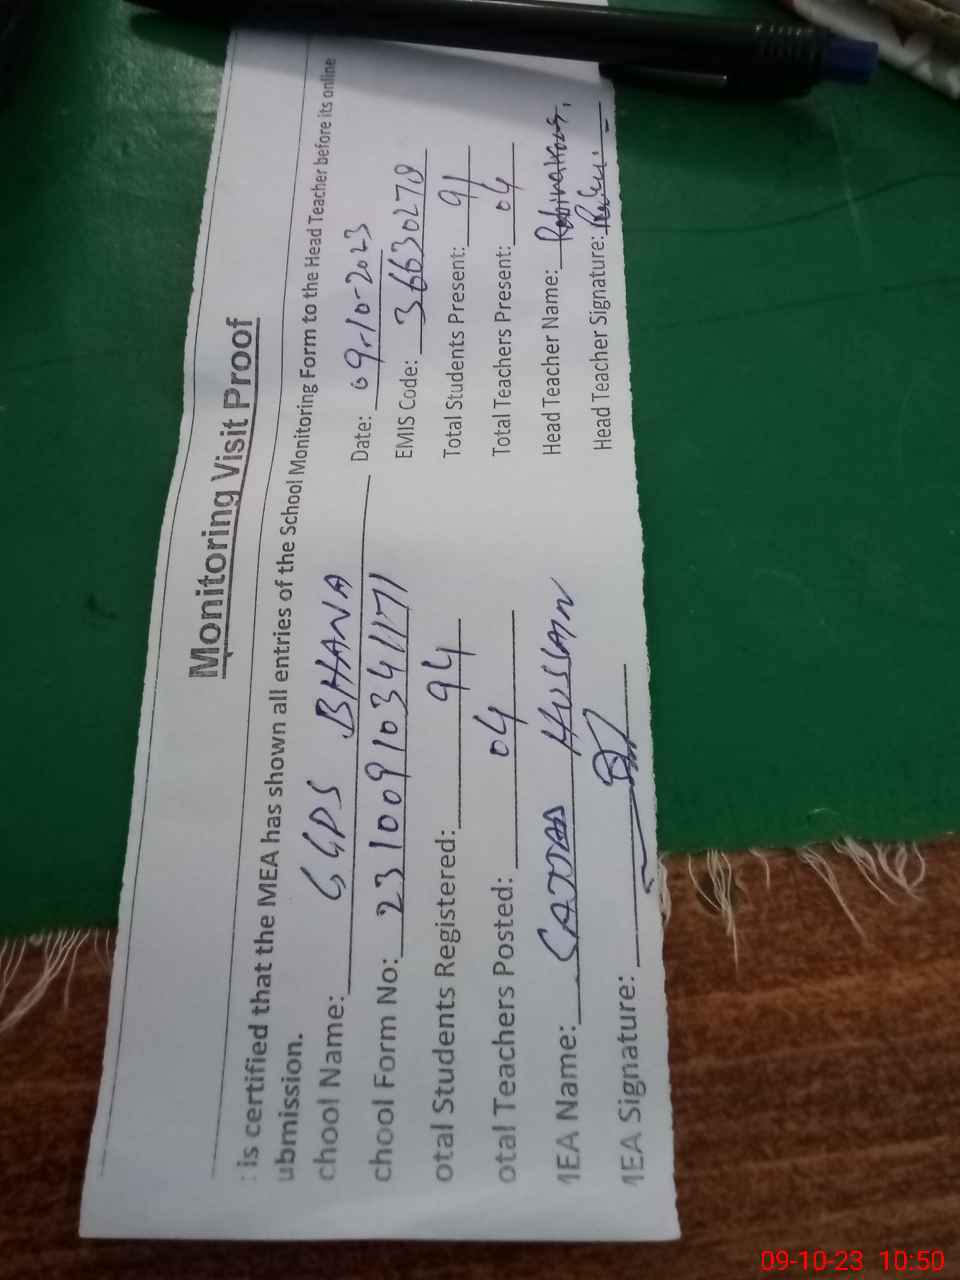 Monitoring Visit Proof
: is certified that the MEA has shown all entries of the School Monitoring Form to the Head Teacher before its online
ubmission.
chool Name: GGPS BHANA Date: 09-10-2023
chool Form No: 23100910341171 EMIS Code: 36630278
otal Students Registered: 94 Total Students Present: 91
otal Teachers Posted: 04 Total Teachers Present: 04
MEA Name: SAJJAD HUSSAIN Head Teacher Name:
MEA Signature: Head Teacher Signature:
09-10-23 10:50